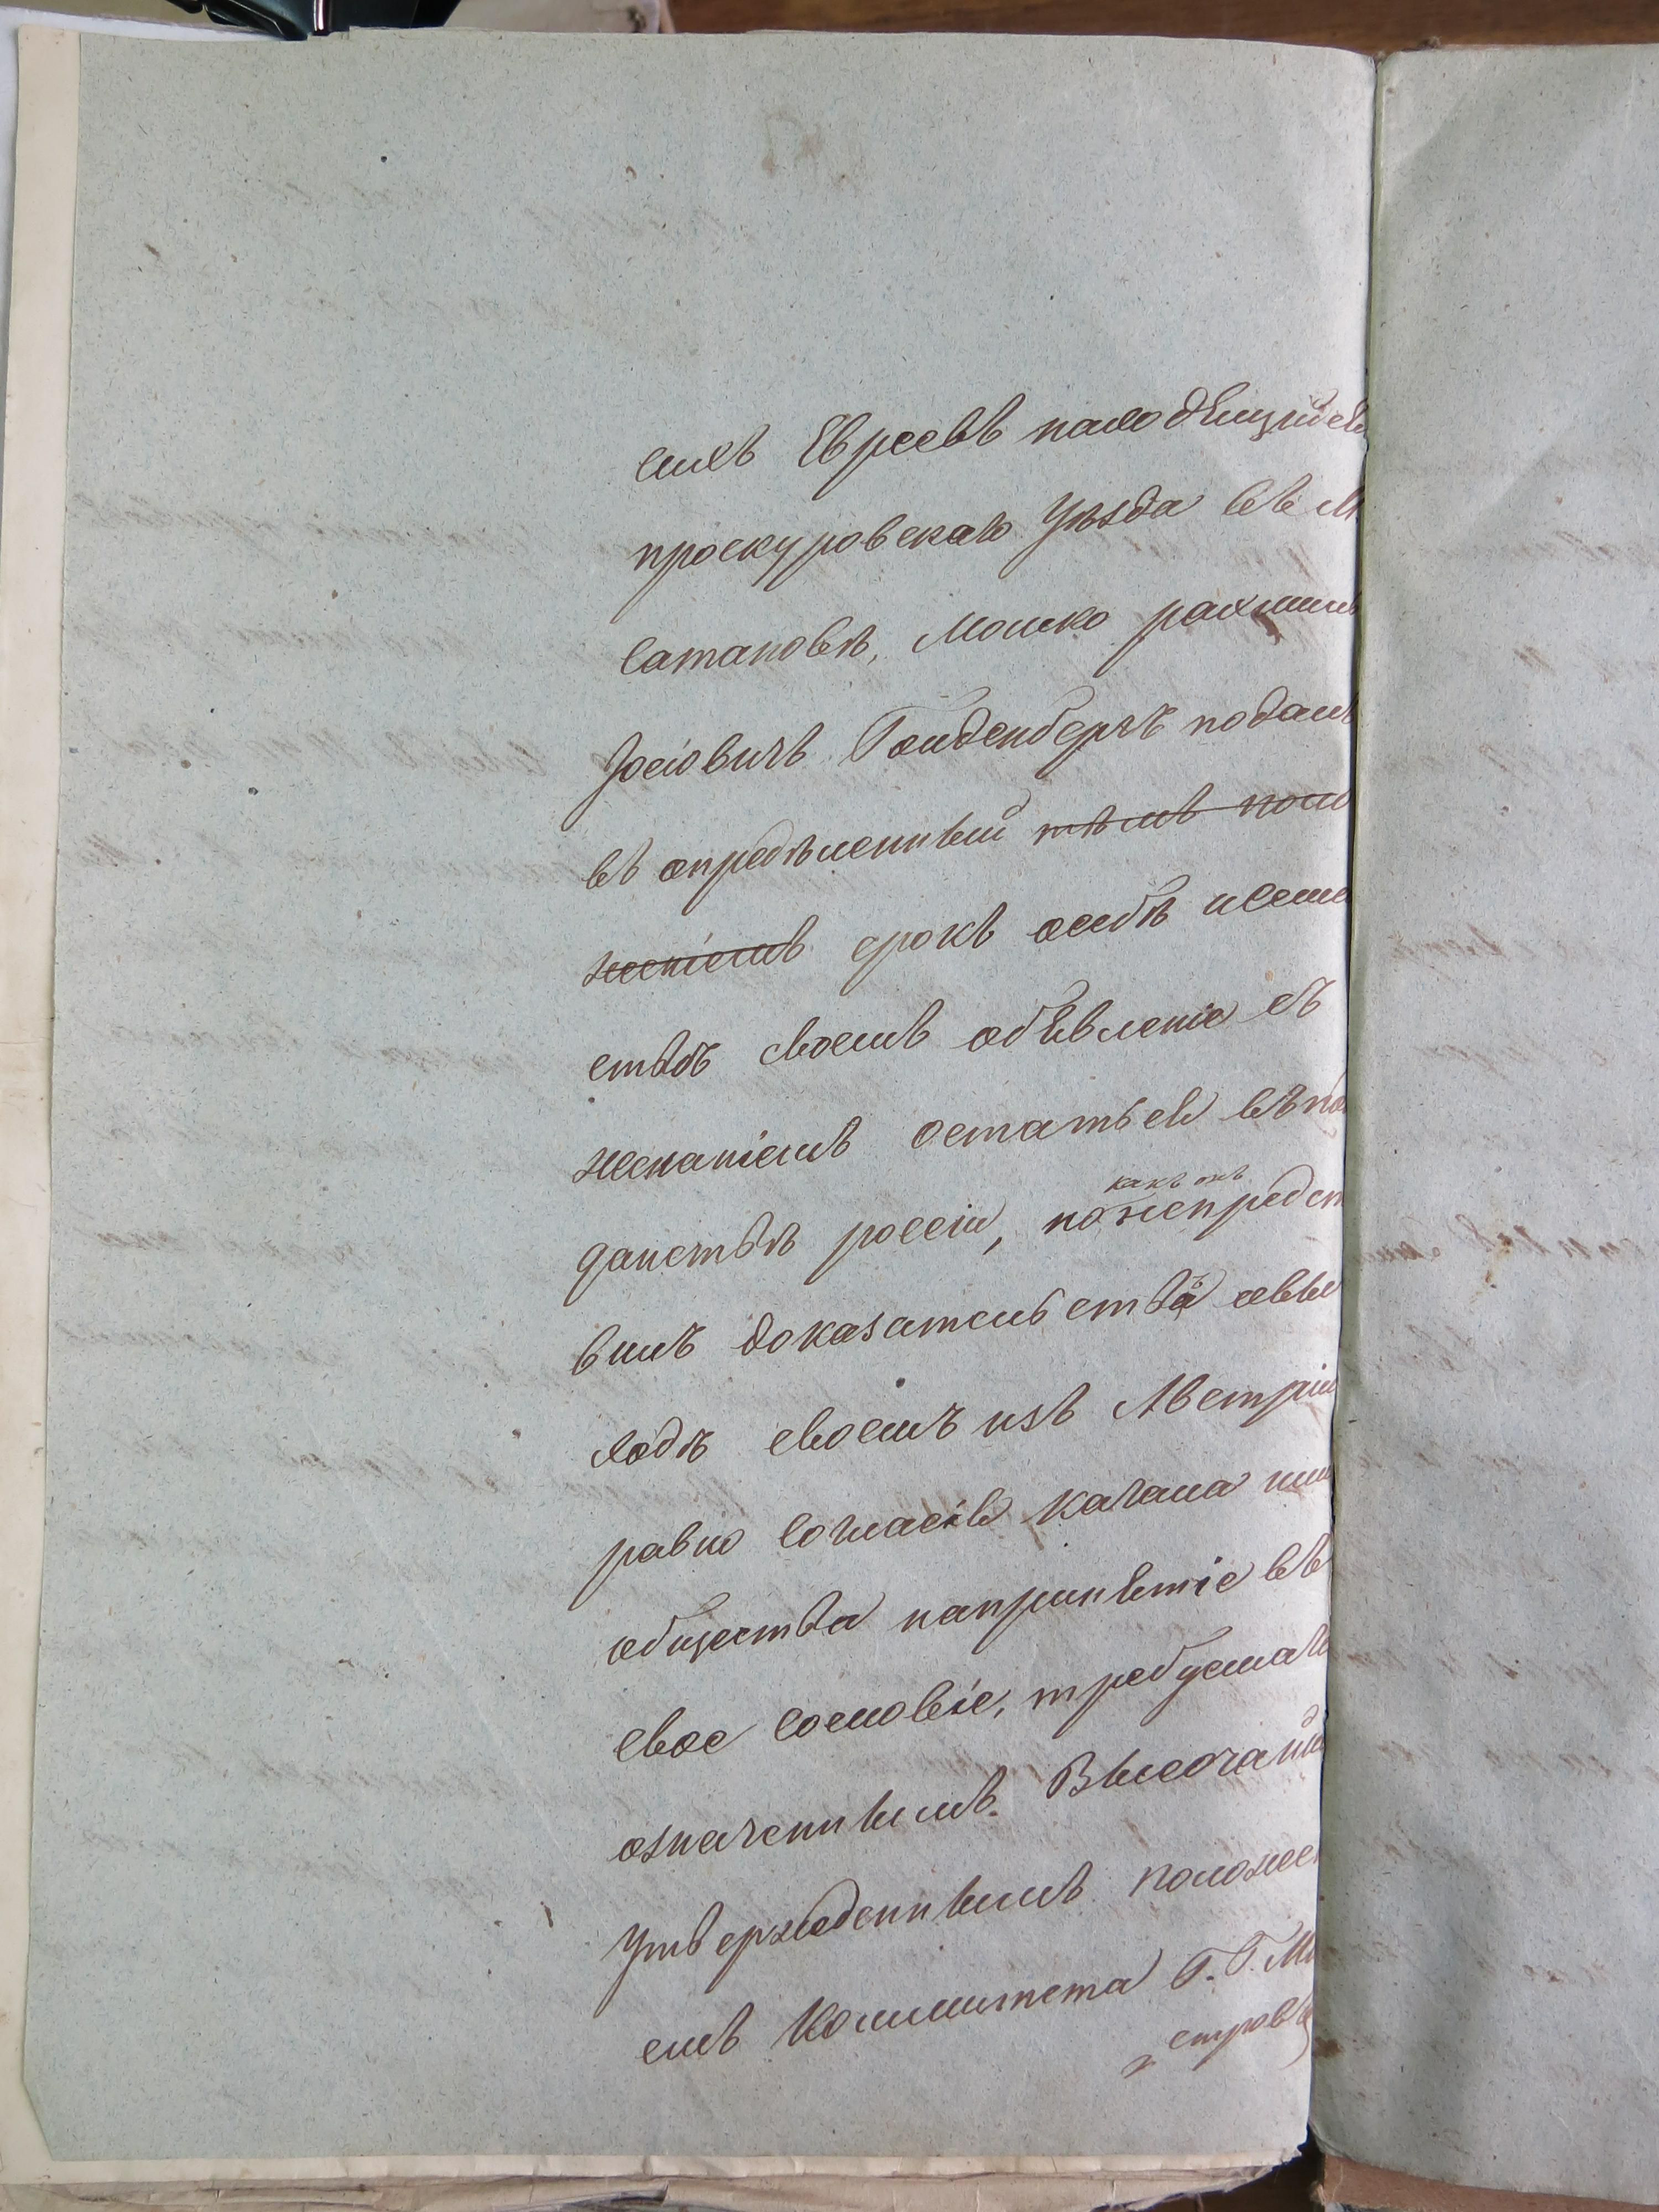 сихъ Евреевъ находящійся
проскуровскаго Уѣзда въ М
Сатановѣ, Мошко
Іосіовичъ Гольденбергъ подалъ
въ опредѣленный тѣмъ поло
женіемъ срокъ осебѣ исеме
ствѣ своемъ объявленіе съ
желаніемъ остаться въ по
данствѣ россіи, но какъ онъ непредст
вилъ доказательствъ овы
ходѣ своемъ изъ Австріи
равно согласія кагала или
общества напринятіе въ
свое сословіе, требуемаго
означеннымъ Высочайше
Утвержденнымъ положен
емъ Коммитета Г.Г. Ми
стровъ